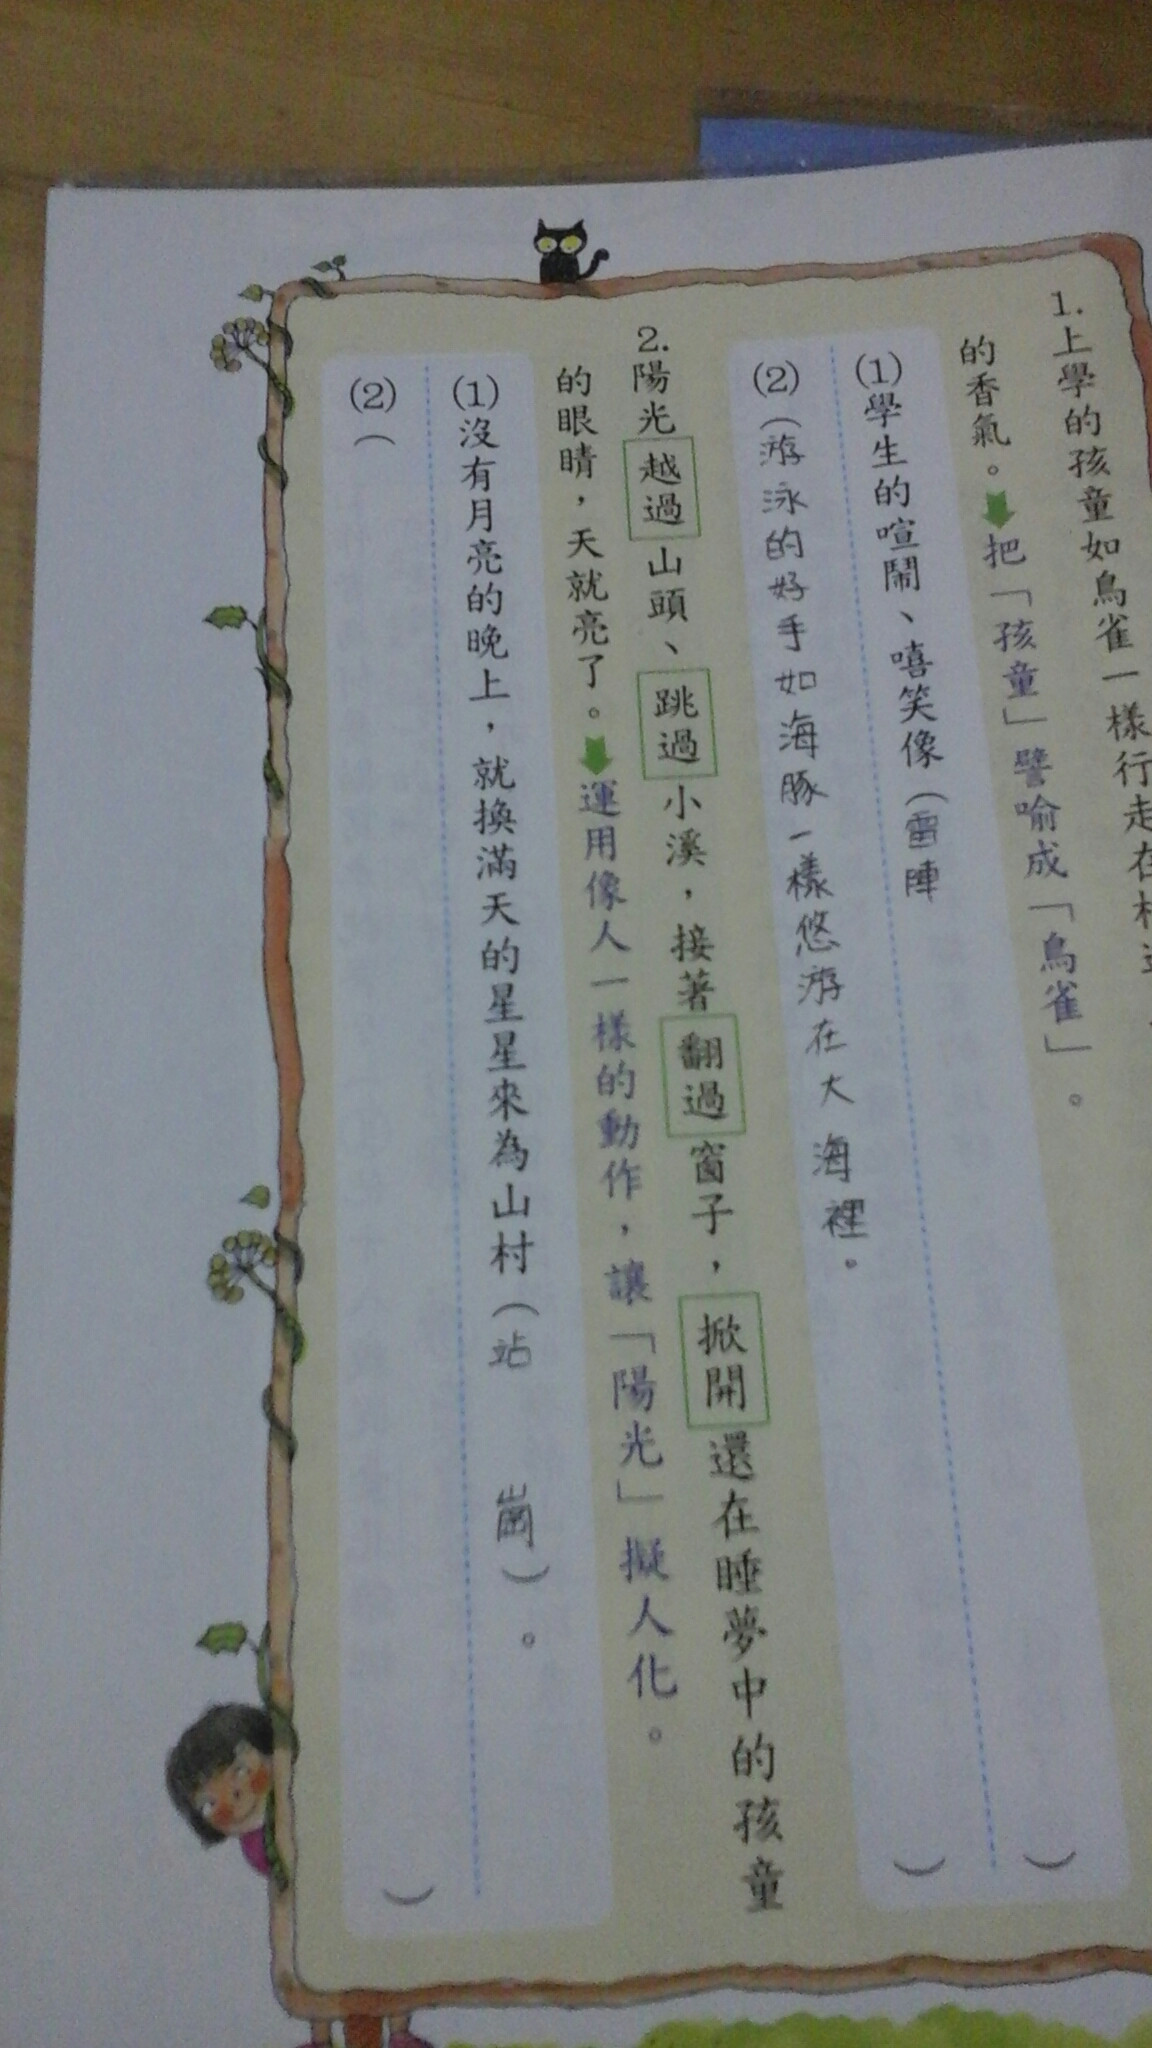 1.上學的孩童如鳥雀一樣行走在村
的香氣。把「孩童」譬喻成「鳥雀」。
(1)學生的喧鬧、嘻笑像(雷陣
)
(2)(游泳的好手如海豚一樣悠游在大海裡。
)
2.陽光越過山頭、跳過小溪，接著翻過窗子，掀開還在睡夢中的孩童
的眼睛，天就亮了。運用像人一樣的動作，讓「陽光」擬人化。
(1)沒有月亮的晚上，就換滿天的星星來為山村(站崗)。
(2)(
)